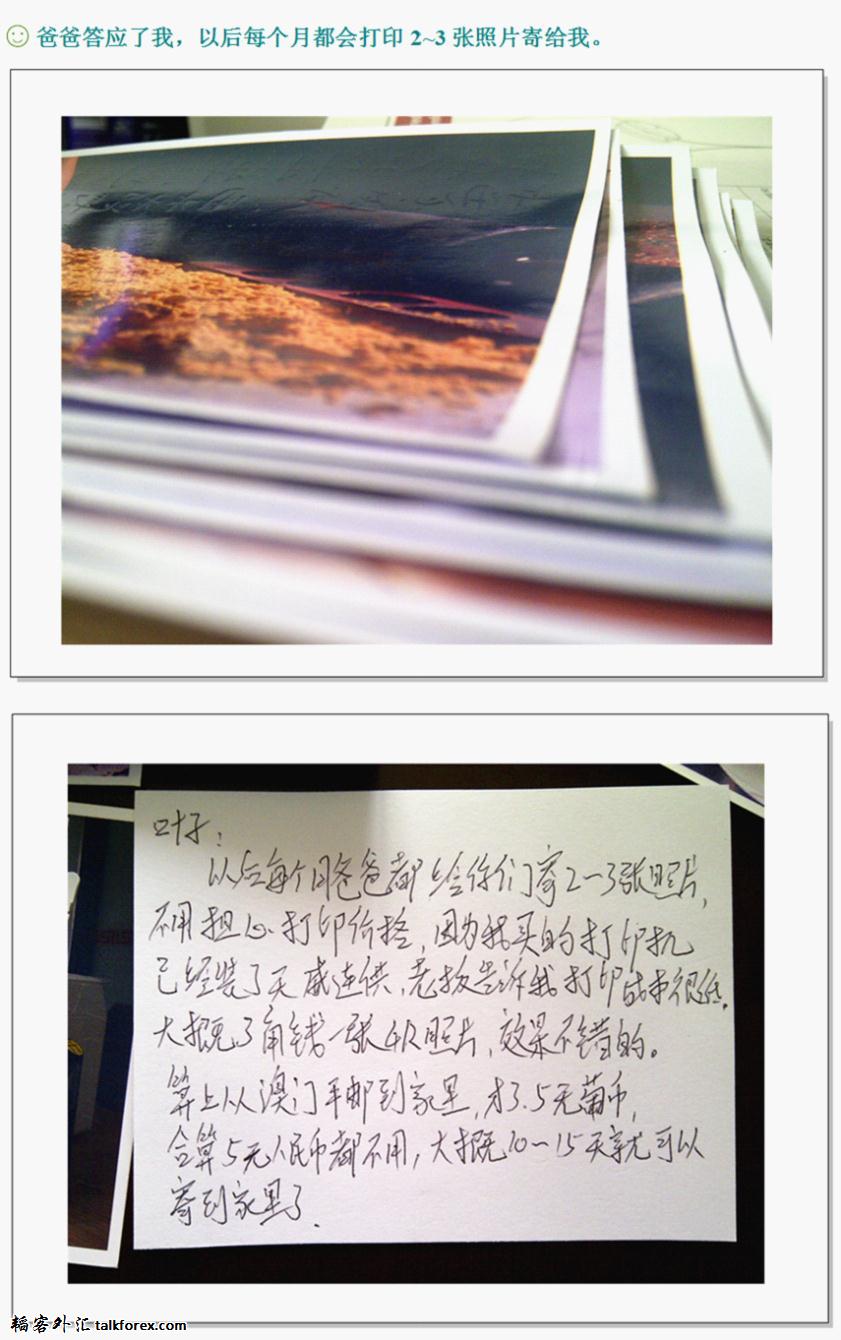 爸爸答应了我，以后每个月都会打印 2~3 张照片寄给我。
叶子：
以后每个月爸爸都给你们寄2—3张照片，
不用担心打印价格，因为我买的打印机
已经装了天威连供，老板告诉我打印成本很低。
大概3角钱一张4R照片，效果不错的。
算上从澳门平邮到家里，才3.5元葡币，
合算5元人民币都不用，大概10—15天就可以
寄到家里了．
韬客外汇 talkforex.com